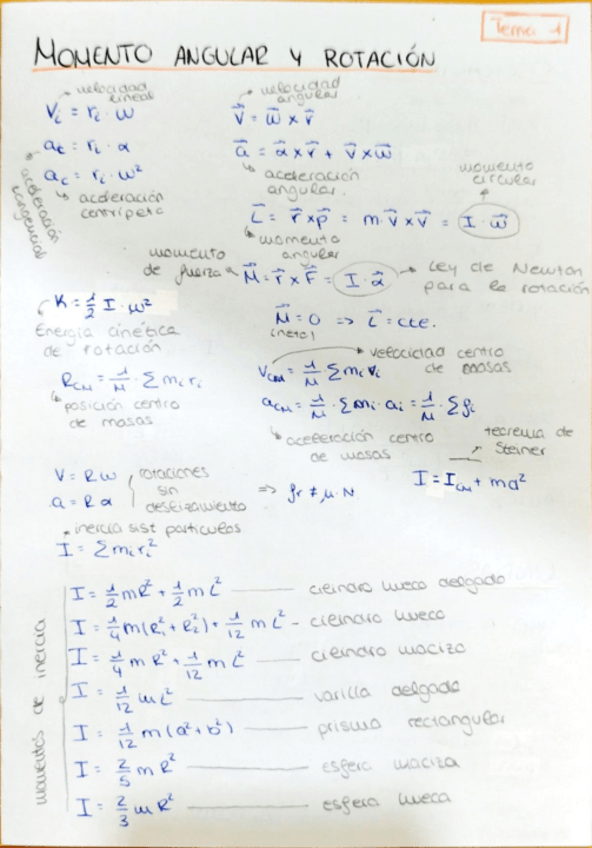 Tema 1
MOMENTO ANGULAR Y ROTACIÓN
velocidad lineal
Vᵢ = rᵢ · ω
aₜ = rᵢ · α
a꜀ = rᵢ · ω²
aceleración tangencial
aceleración centrípeta
velocidad angular
v⃗ = ω⃗ x r⃗
a⃗ = α⃗ x r⃗ + v⃗ x ω⃗
aceleración angular.
momento circular
L⃗ = r⃗ x p⃗ = m · v⃗ x r⃗ = I · ω⃗
momento angular
momento de fuerza
M⃗ = r⃗ x F⃗ = I · α⃗
Ley de Newton para la rotación
K = 1/2 I · ω²
Energía cinética de rotación
M⃗ = 0 => L⃗ = cte.
(neto)
R_CM = 1/M · Σ mᵢ rᵢ
posición centro de masas
V_CM = 1/M · Σ mᵢ vᵢ
velocidad centro de masas
a_CM = 1/M · Σ mᵢ · aᵢ = 1/M · Σ fᵢ
aceleración centro de masas
teorema de Steiner
I = I_CM + md²
V = Rω
a = Rα
rotaciones sin deslizamiento
=> fr ≠ μ · N
inercia sist partículas
I = Σ mᵢ rᵢ²
momentos de inercia
I = 1/2 mR² + 1/2 m L² — cilindro hueco delgado
I = 1/4 m(R₁² + R₂²) + 1/12 m L² - cilindro hueco
I = 1/4 m R² + 1/12 m L² — cilindro macizo
I = 1/12 m L² — varilla delgada
I = 1/12 m (a² + b²) — prisma rectangular
I = 2/5 m R² — esfera maciza
I = 2/3 m R² — esfera hueca